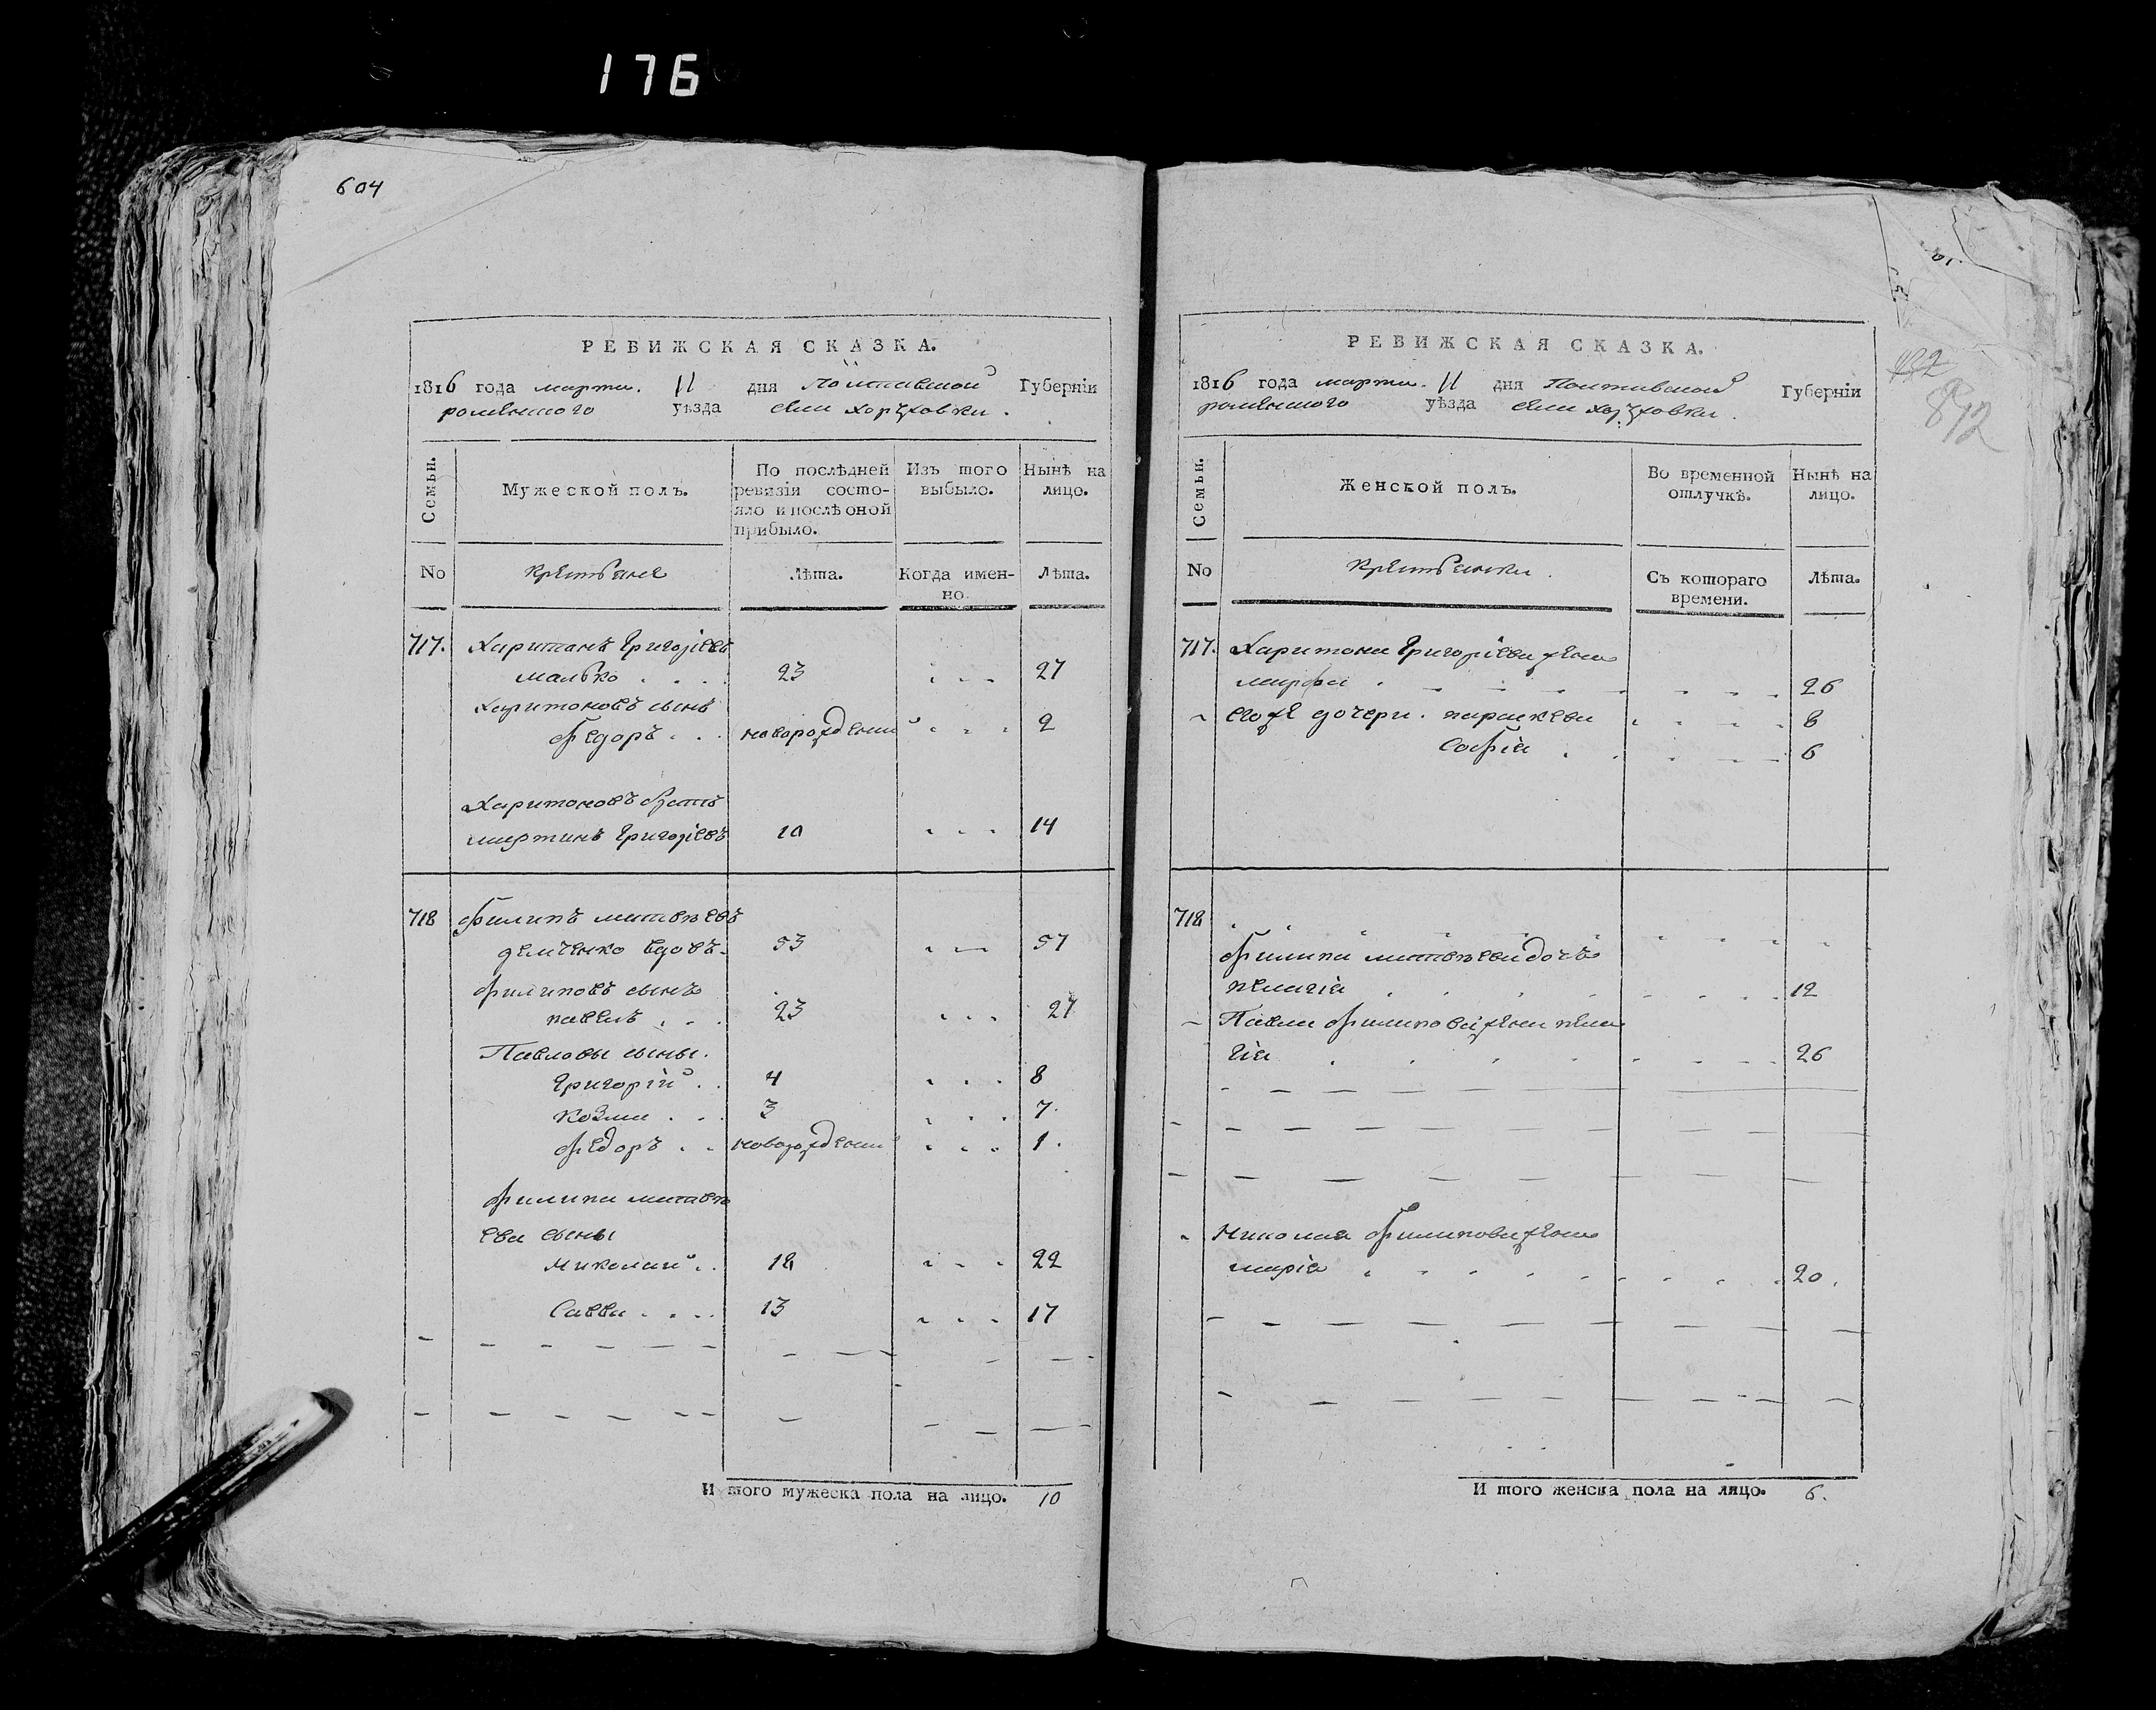 176
604
РЕВИЖСКАЯ СКАЗКА.
1816 года марта. 11 дня Полтавской Губерніи
роменского уѣзда села хоружовки.
Семьи.
Мужеской полъ.
По послѣдней
ревизія состо-
яло и послѣ оной
прибыло.
Изъ того
выбыло.
Нынѣ на
лицо.
No
крестьяне
Лѣта.
Когда имен-
но.
Лѣта.
717. Харитонъ Григоріевъ
малько . . . . 23 . . . 27
Харитоновъ сынъ
Федоръ . . . новорожденый . . . 2
Харитоновъ братъ
мартинъ Григоріевъ 10 . . . 14
718 Филипъ матвѣевъ
вдовъ. 53 . . . 57
филиповъ сынъ
павелъ . . . 23 . . . 27
Павловы сыны.
Григорій . . 4 . . . 8
Козма . . . 3 . . . 7.
Федоръ . . новорожденый . . . 1.
филипа матвѣ
ева сыны
Николай . . 18 . . . 22
Савва . . . . 13 . . . 17
И того мужеска пола на лицо. 10
РЕВИЖСКАЯ СКАЗКА.
1816 года марта. 11 дня Полтавской Губерніи
роменского уѣзда села хоружовки.
892
Семьи.
Женской полъ.
Во временной
отлучкѣ.
Нынѣ на
лицо.
No
крестьянки.
Съ котораго
времени.
Лѣта.
717. Харитона Григоріева жена
марфа . . . . 26
его же дочери. параскева . . . . 8
Софія . . . . 6
718
филипа матвѣева дочь
пелагія . . . . 12
Павла филипова жена пела
гія . . . . 26
Николая филипова жена
марія . . . . 20.
И того женска пола на лицо. 6.